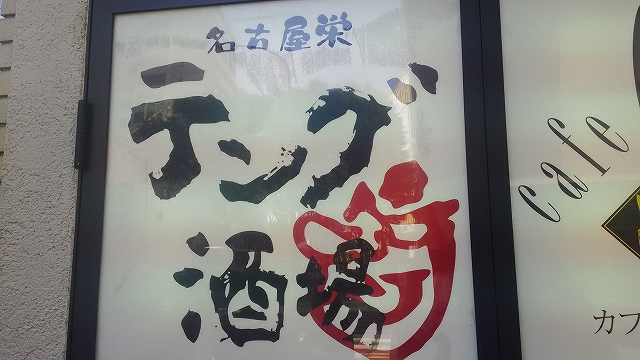 名古屋栄
テング
酒場
cafe
カフ